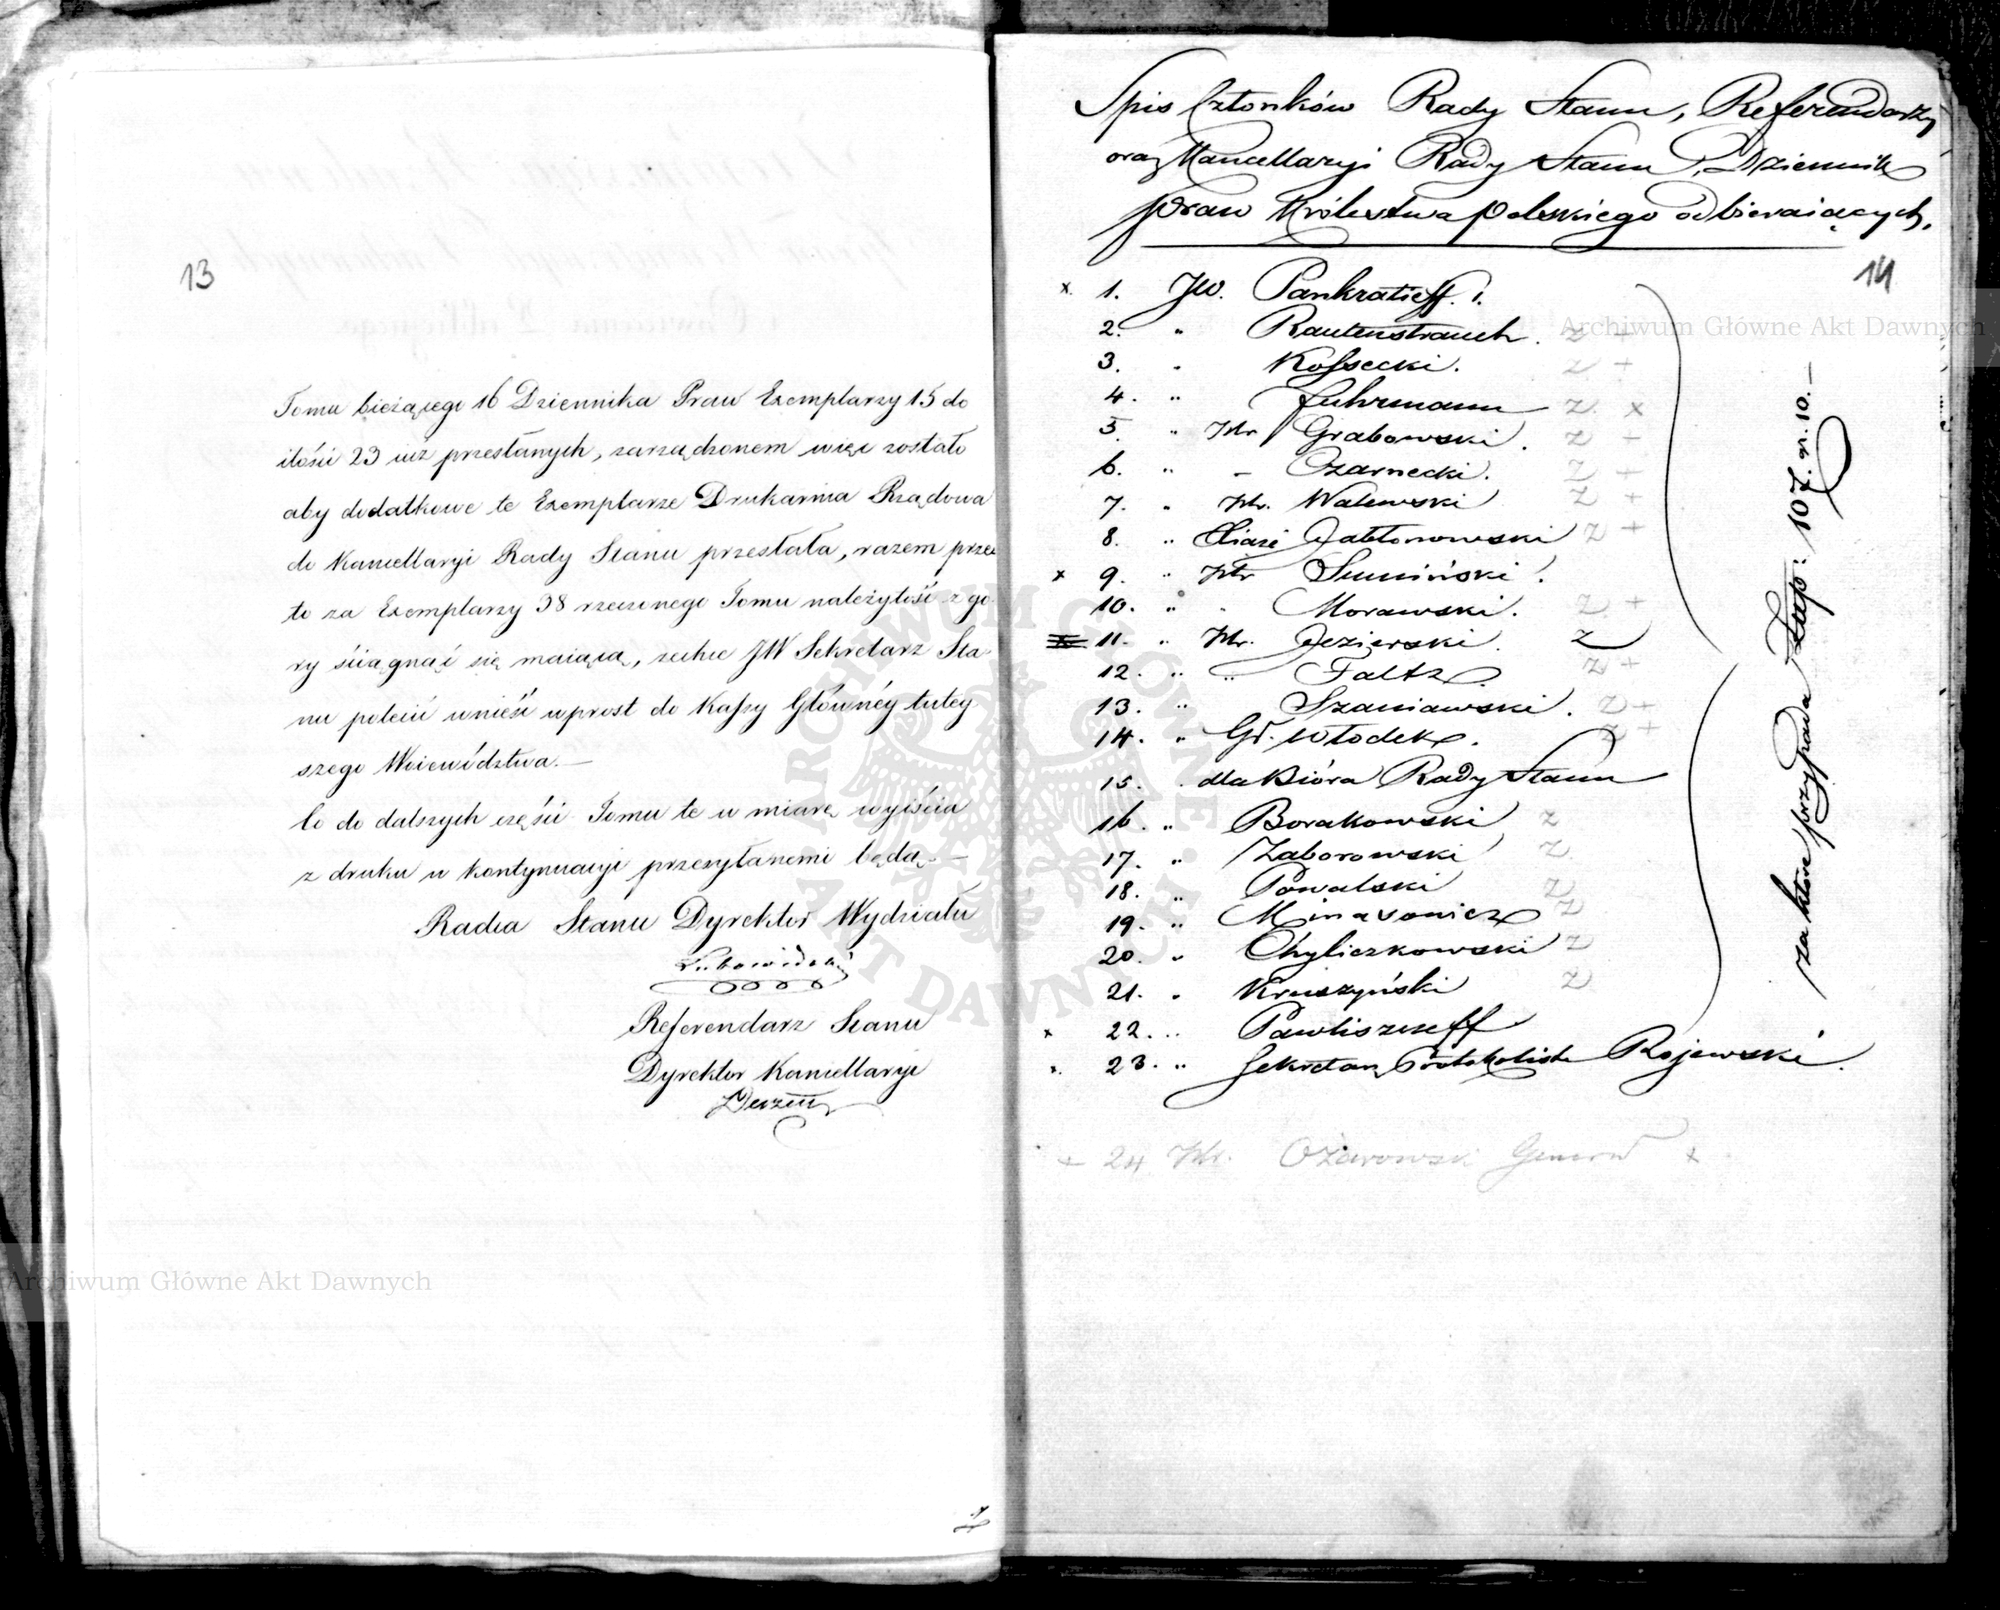 13
Tomu bieżącego 16 Dziennika Praw Exemplarzy 15 do
ilości 23 iuż przesłanych, zarządzonem więc zostało
aby dodatkowe te Exemplarze Drukarnia Rządowa
do Kancellaryi Rady Stanu przesłała, razem prze
to za Exemplarzy 38 rzeczonego Tomu należytość z gó
ry ściągnąć się maiącą, zechce JW Sekretarz Sta-
nu polecić wnieść wprost do Kassy Główney tutey
szego Woiewództwa.—
Co do dalszych części Tomu te w miarę wyiścia
z druku w kontynuacyi przesyłanemi będą.—
Radca Stanu Dyrektor Wydziału
Referendarz Stanu
Dyrektor Kancellaryi
Spis Członków Rady Stanu, Referendarzy
oraz Kancellaryi Rady Stanu, Dziennik
praw Królestwa Polskiego odbieraiących.
14
x. 1. JW. Pankratieff. 1.
2. " Rautenstrauch. z +
3. " Kossecki. z +
4. " Fuhrmann z. x
5. " Hr Grabowski. z +
6. " – Czarnecki. z +
7. " Hr. Walewski z +
8. " Xiąże Jabłonowski z +
x 9. " Hr Sumiński.
10. " " Morawski. z +
x 11. " Hr. Jezierski. z
12. " " Faltz. z +
13. " Szaniawski. z +
14. " Gł. Włodek. z +
15. dla Bióra Rady Stanu
16. " Borakowski z
17. " Zaborowski z
18. " Powalski z
19. " Minasowicz z
20. " Chyliczkowski z
21. " Kruszyński z
x 22. " Pawliszczeff
x. 23. " Sekretarz Protokolista Rojewski.
+ 24 Hr. Ożarowski Generał x
za które przypada Złtp: 107. gr. 10.—
Archiwum Główne Akt Dawnych
Archiwum Główne Akt Dawnych
ARCHIWUM GŁÓWNE AKT DAWNYCH